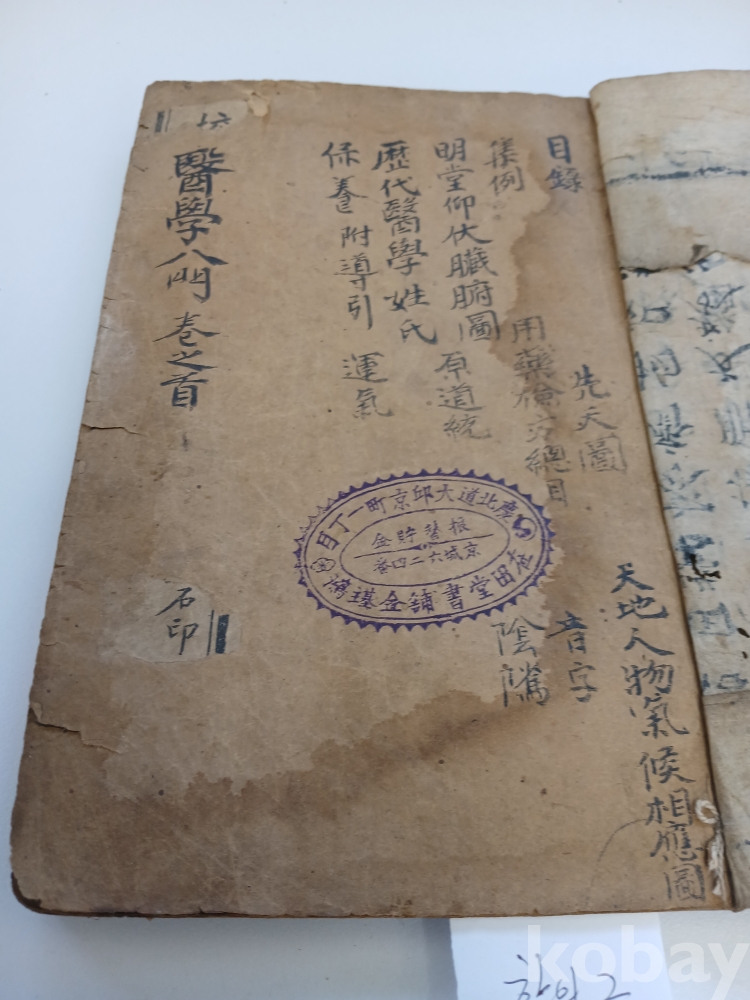 天地人物氣候相應圖
目錄 先天圖 音字
集例 用藥檢方總目 陰騭
明堂仰伏臟腑圖 原道統
歷代醫學姓氏
保養附導引 運氣
慶北道大邱京町一丁目
振替貯金
京城六二四番
在田堂書鋪金璂鴻
醫學入門 卷之首
石印
kobay